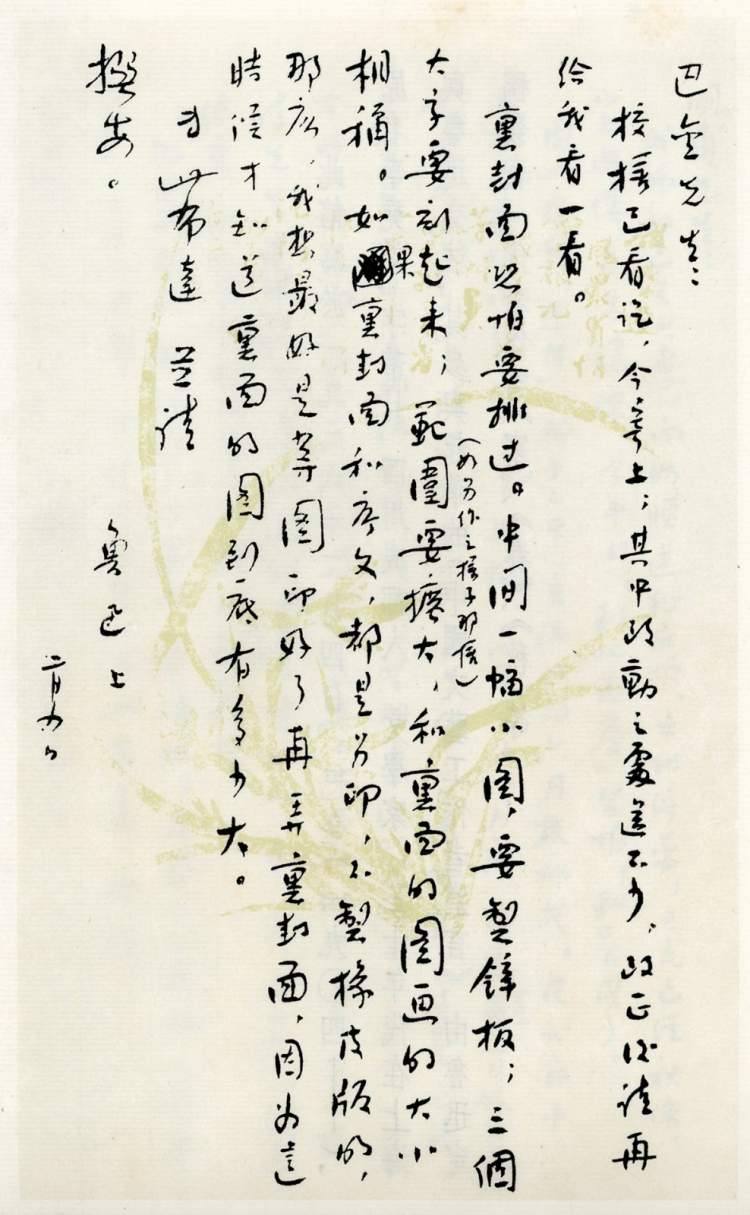 巴金先生：
校樣已看訖，今寄上；其中改動之處還不少，改正後請再
給我看一看。
裏封面恐怕要排过。中间一幅小圖，要製鋅板；三個
（如另作之樣子那樣）
大字要刻起来；範圍要擴大，和裏面的圖画的大小
相稱。如果裏封面和序文，都是另印，不製橡皮版的，
那麽，我想最好是等圖印好了再弄裏封面，因为這
時候才知道裏面的圖到底有多少大。
專此布達 並請
撰安。
魯迅上
二月四日